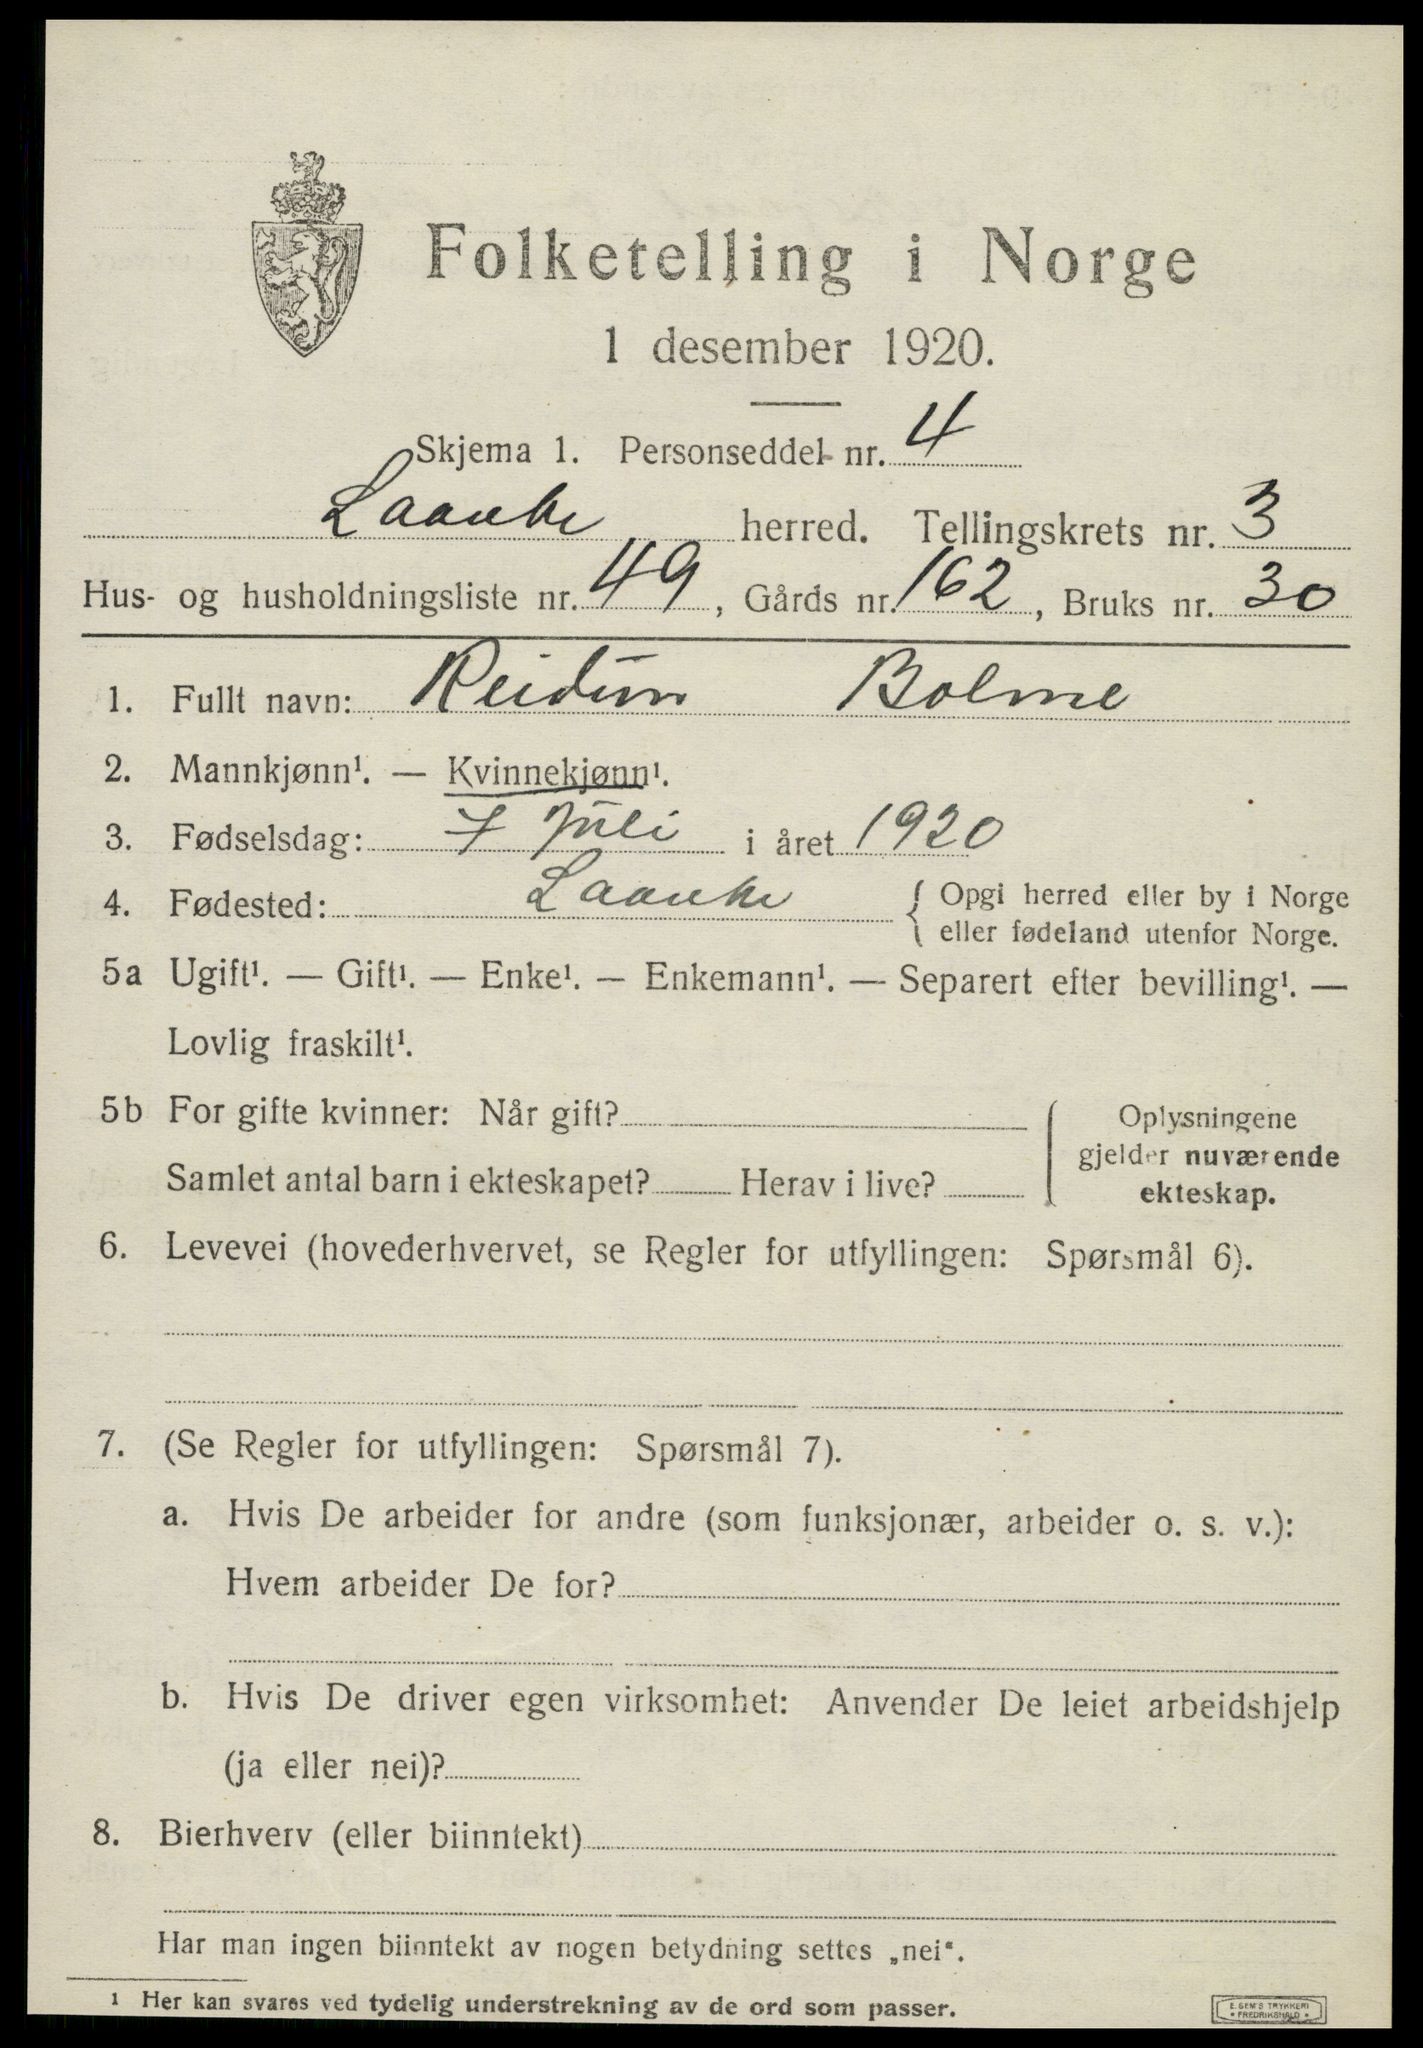 Folketelling i Norge
1 desember 1920.
Skjema 1. Personseddel nr. 4
Laanke herred. Tellingskrets nr. 3
Hus- og husholdningsliste nr. 49, Gårds nr. 162, Bruks nr. 30
1. Fullt navn: Reidun Bolme
2. Mannkjønn¹. — Kvinnekjønn¹.
3. Fødselsdag: 7 Juli i året 1920
4. Fødested: Laanke { Opgi herred eller by i Norge
eller fødeland utenfor Norge.
5a Ugift¹. — Gift¹. — Enke¹. — Enkemann¹. — Separert efter bevilling¹. —
Lovlig fraskilt¹.
5b For gifte kvinner: Når gift? Oplysningene
gjelder nuværende
Samlet antal barn i ekteskapet? Herav i live? ekteskap.
6. Levevei (hovederhvervet, se Regler for utfyllingen: Spørsmål 6).
7. (Se Regler for utfyllingen: Spørsmål 7).
a. Hvis De arbeider for andre (som funksjonær, arbeider o. s. v.):
Hvem arbeider De for?
b. Hvis De driver egen virksomhet: Anvender De leiet arbeidshjelp
(ja eller nei)?
8. Bierhverv (eller biinntekt)
Har man ingen biinntekt av nogen betydning settes „nei“.
¹ Her kan svares ved tydelig understrekning av de ord som passer.
E. SEM'S TRYKKERI
• FREDRIKSHALD •